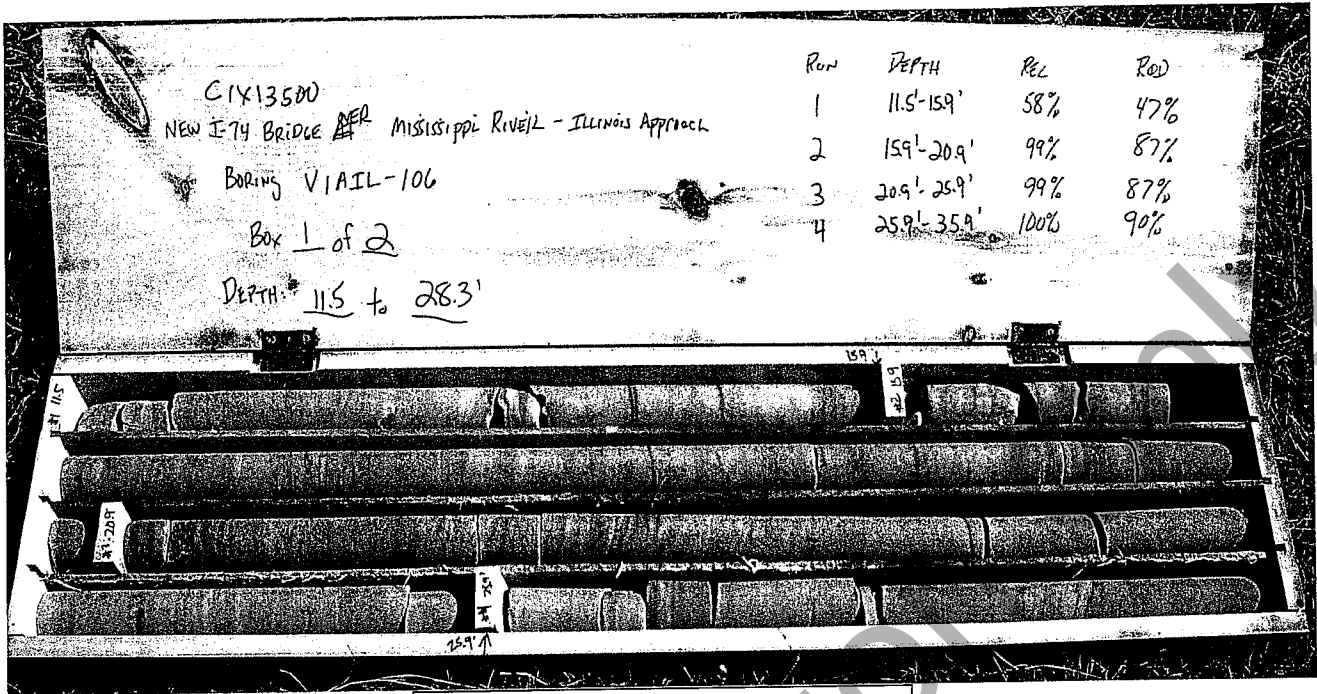 C1X13500
NEW I-74 BRIDGE OVER MISSISSIPPI RIVER - ILLINOIS APPROACH
BORING V1AIL-106
BOX 1 of 2
DEPTH: 11.5 to 28.3'
RUN DEPTH REC RQD
1 11.5'-15.9' 58% 47%
2 15.9'-20.9' 99% 87%
3 20.9'-25.9' 99% 87%
4 25.9'-35.9' 100% 90%
15.9'
#1 11.5
#2 15.9
#3 20.9
#4 25.9
25.9'